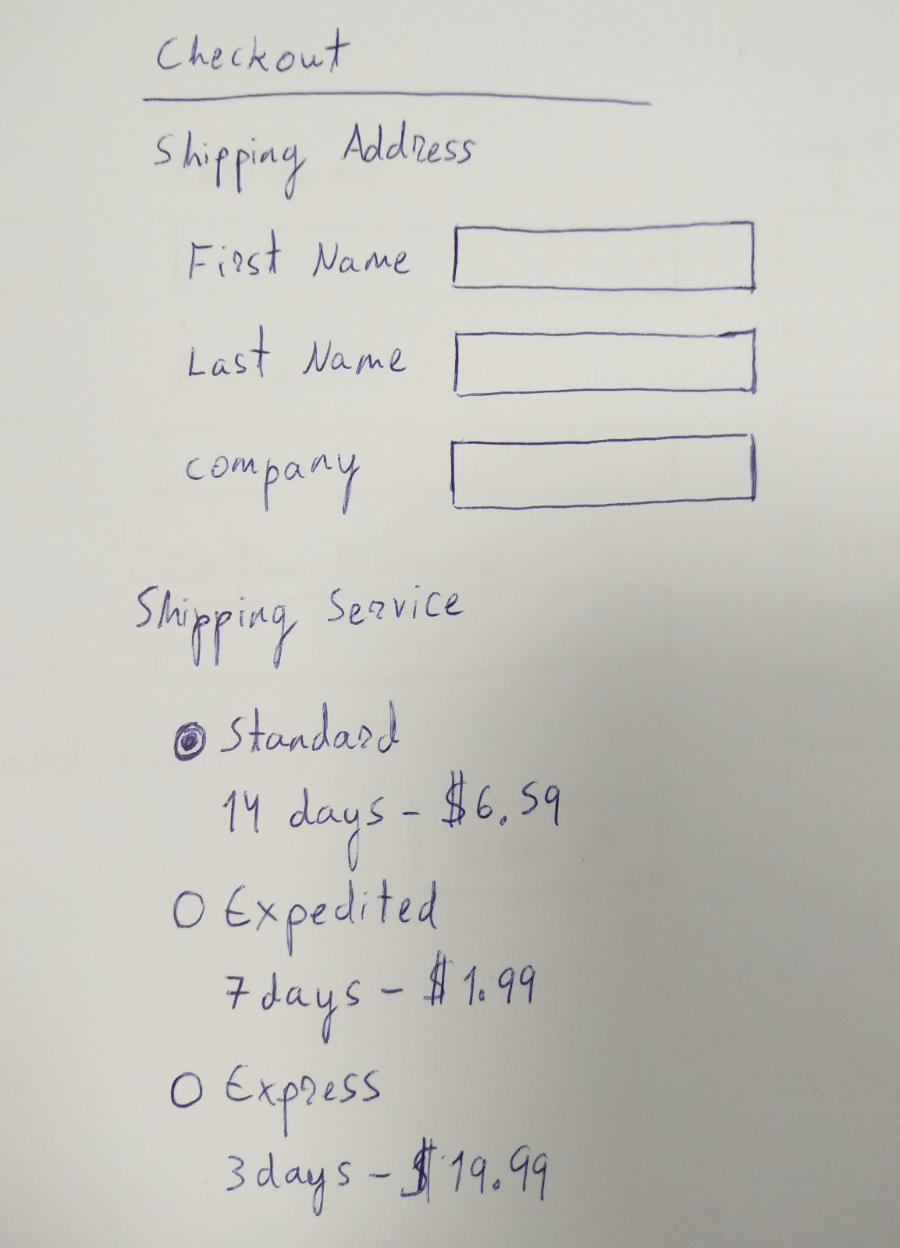 Checkout
Shipping Address
First Name
Last Name
company
Shipping Service
Standard
14 days - $6.59
Expedited
7 days - $1.99
Express
3 days - $19.99